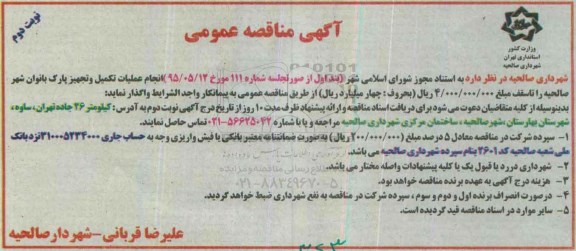 آگهی مناقصه عمومی
نوبت دوم
وزارت کشور
استانداری تهران
شهرداری صالحیه
شهرداری صالحیه در نظر دارد به استناد مجوز شورای اسلامی شهر (بند اول از صورتجلسه شماره ۱۱۱ مورخ ۹۵/۰۵/۱۴) انجام عملیات تکمیل وتجهیز پارک بانوان شهر
صالحیه را تاسقف مبلغ ۴/۰۰۰/۰۰۰/۰۰۰ ریال (بحروف : چهار میلیارد ریال) از طریق مناقصه عمومی به پیمانکار واجد الشرایط واگذار نماید:
بدینوسیله از کلیه متقاضیان دعوت می شود برای دریافت اسناد مناقصه و ارائه پیشنهاد ظرف مدت ۱۰ روز از تاریخ درج آگهی نوبت دوم به آدرس: کیلومتر ۲۶ جاده تهران ، ساوه ،
شهرستان بهارستان ،شهرصالحیه ، ساختمان مرکزی شهرداری صالحیه مراجعه و یا با شماره ۵۶۶۲۵۰۴۲-۰۲۱ تماس حاصل نمایند.
۱- سپرده شرکت در مناقصه معادل ۵ درصد مبلغ (۲۰۰/۰۰۰/۰۰۰ ریال) به صورت ضمانتنامه معتبر بانکی یا فیش واریزی وجه به حساب جاری ۳۱۰۰۰۵۲۳۴۰۰۰ نزد بانک
ملی شعبه صالحیه کد ۲۶۰۱ بنام سپرده شهرداری صالحیه می باشد.
۲- شهرداری در رد یا قبول یک یا کلیه پیشنهادات واصله مختار می باشد.
۳- هزینه درج آگهی به عهده برنده مناقصه خواهد بود.
۴- درصورت انصراف برنده اول و دوم و سوم ، سپرده شرکت در مناقصه به نفع شهرداری ضبط خواهد گردید.
۵- سایر موارد در اسناد مناقصه قید گردیده است.
۰۲۱-۸۸۳۴۹۶۷۰-۵
علیرضا قربانی-شهردارصالحیه